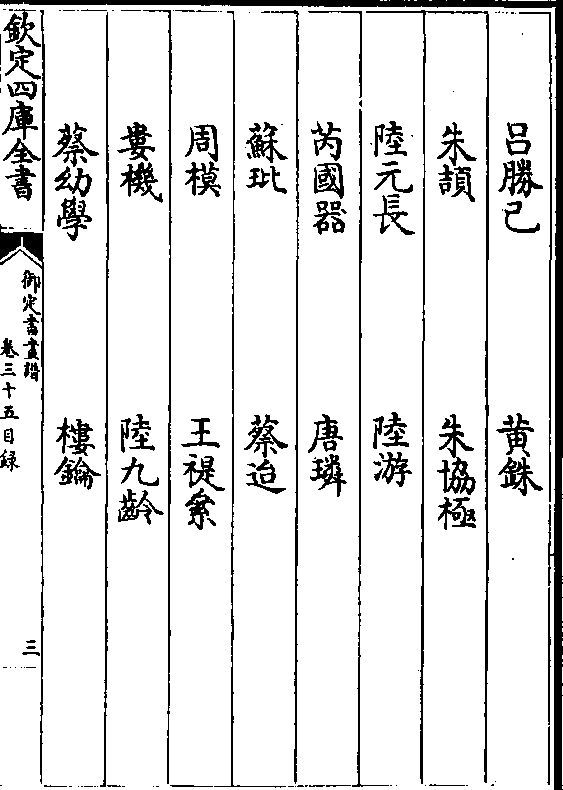 呂勝己 黄銖
朱頡 朱協極
陸元長 陸游
芮國器 唐璘
蘇玭 蔡迨
周模 王禔
婁機 陸九齡
蔡幼學 樓鑰
欽定四庫全書
御定書畫譜
卷三十五目録
三